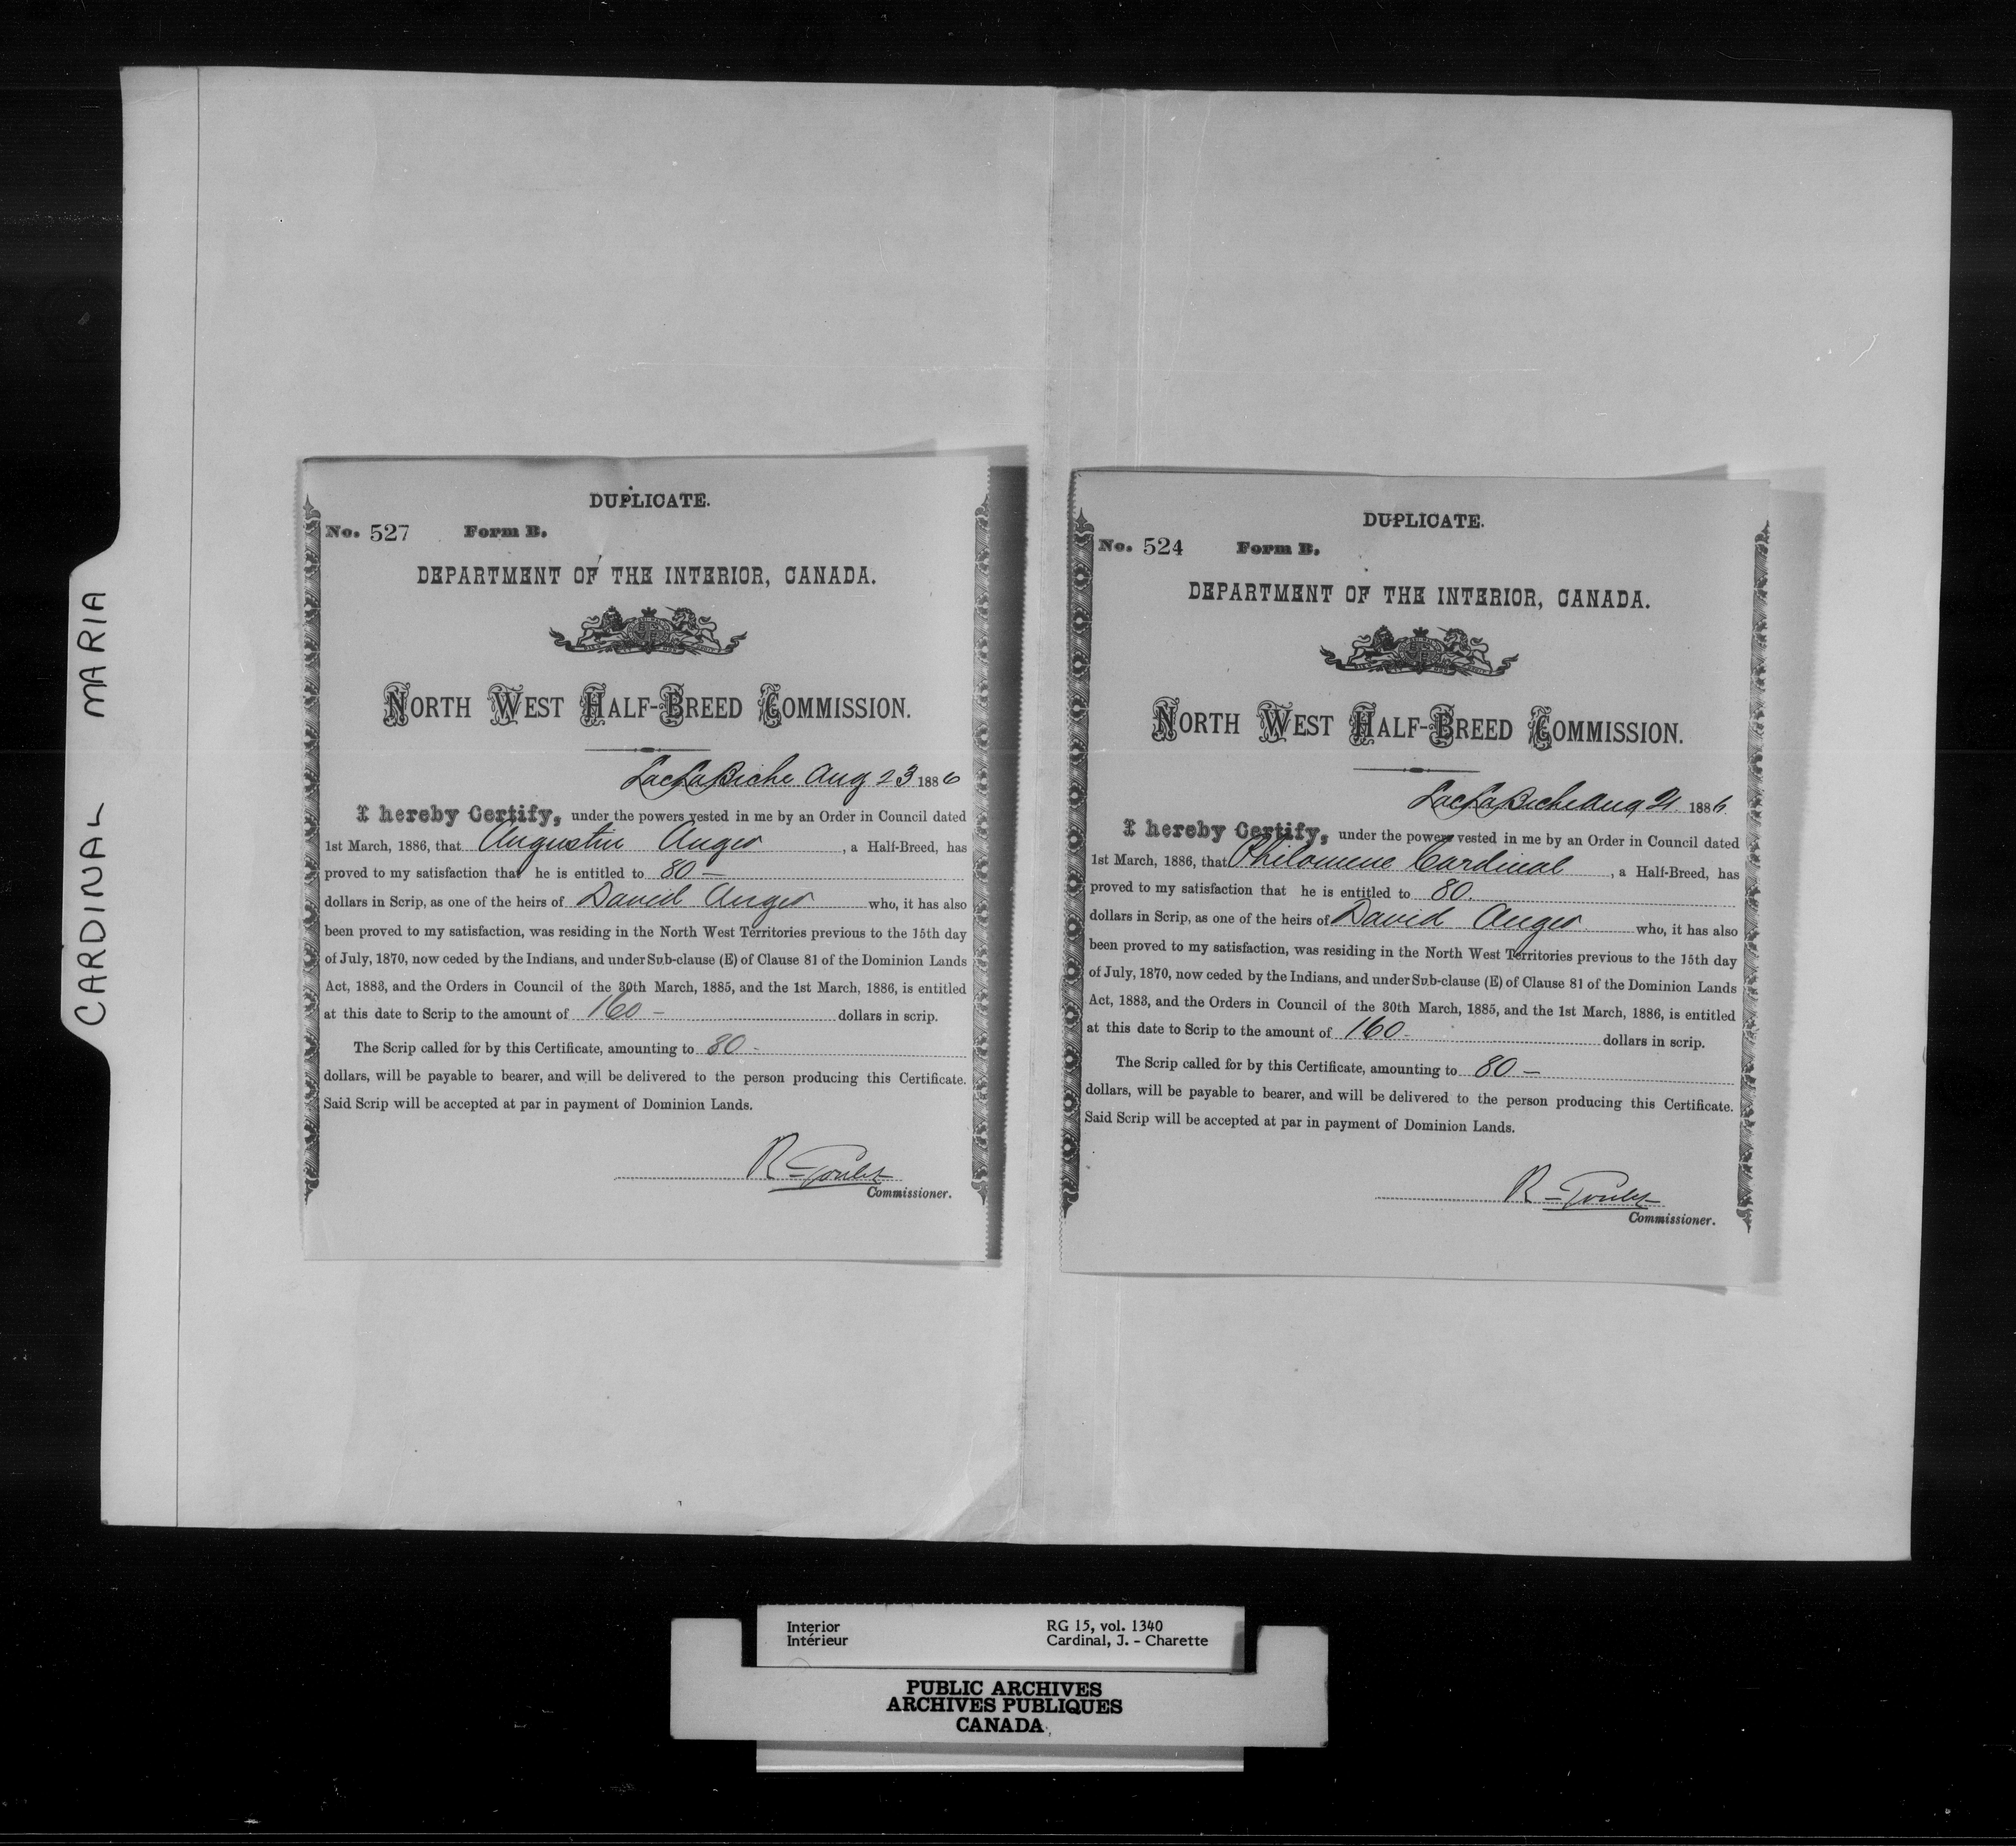 CARDINAL MARIA
DUPLICATE.
No. 527 Form B.
DEPARTMENT OF THE INTERIOR, CANADA.
NORTH WEST HALF-BREED COMMISSION.
Lac La Biche Aug 23 1886
I hereby Certify, under the powers vested in me by an Order in Council dated
1st March, 1886, that Augustin Auger, a Half-Breed, has
proved to my satisfaction that he is entitled to 80 —
dollars in Scrip, as one of the heirs of David Auger who, it has also
been proved to my satisfaction, was residing in the North West Territories previous to the 15th day
of July, 1870, now ceded by the Indians, and under Sub-clause (E) of Clause 81 of the Dominion Lands
Act, 1883, and the Orders in Council of the 30th March, 1885, and the 1st March, 1886, is entitled
at this date to Scrip to the amount of 160 — dollars in scrip.
The Scrip called for by this Certificate, amounting to 80 -
dollars, will be payable to bearer, and will be delivered to the person producing this Certificate.
Said Scrip will be accepted at par in payment of Dominion Lands.
R
Commissioner.
DUPLICATE.
No. 524 Form B.
DEPARTMENT OF THE INTERIOR, CANADA.
NORTH WEST HALF-BREED COMMISSION.
Lac La Biche Aug 21 1886
I hereby Certify, under the powers vested in me by an Order in Council dated
1st March, 1886, that Philomene Cardinal, a Half-Breed, has
proved to my satisfaction that he is entitled to 80.
dollars in Scrip, as one of the heirs of David Auger who, it has also
been proved to my satisfaction, was residing in the North West Territories previous to the 15th day
of July, 1870, now ceded by the Indians, and under Sub-clause (E) of Clause 81 of the Dominion Lands
Act, 1883, and the Orders in Council of the 30th March, 1885, and the 1st March, 1886, is entitled
at this date to Scrip to the amount of 160 - dollars in scrip.
The Scrip called for by this Certificate, amounting to 80 —
dollars, will be payable to bearer, and will be delivered to the person producing this Certificate.
Said Scrip will be accepted at par in payment of Dominion Lands.
R
Commissioner.
Interior RG 15, vol. 1340
Intérieur Cardinal, J. - Charette
PUBLIC ARCHIVES
ARCHIVES PUBLIQUES
CANADA